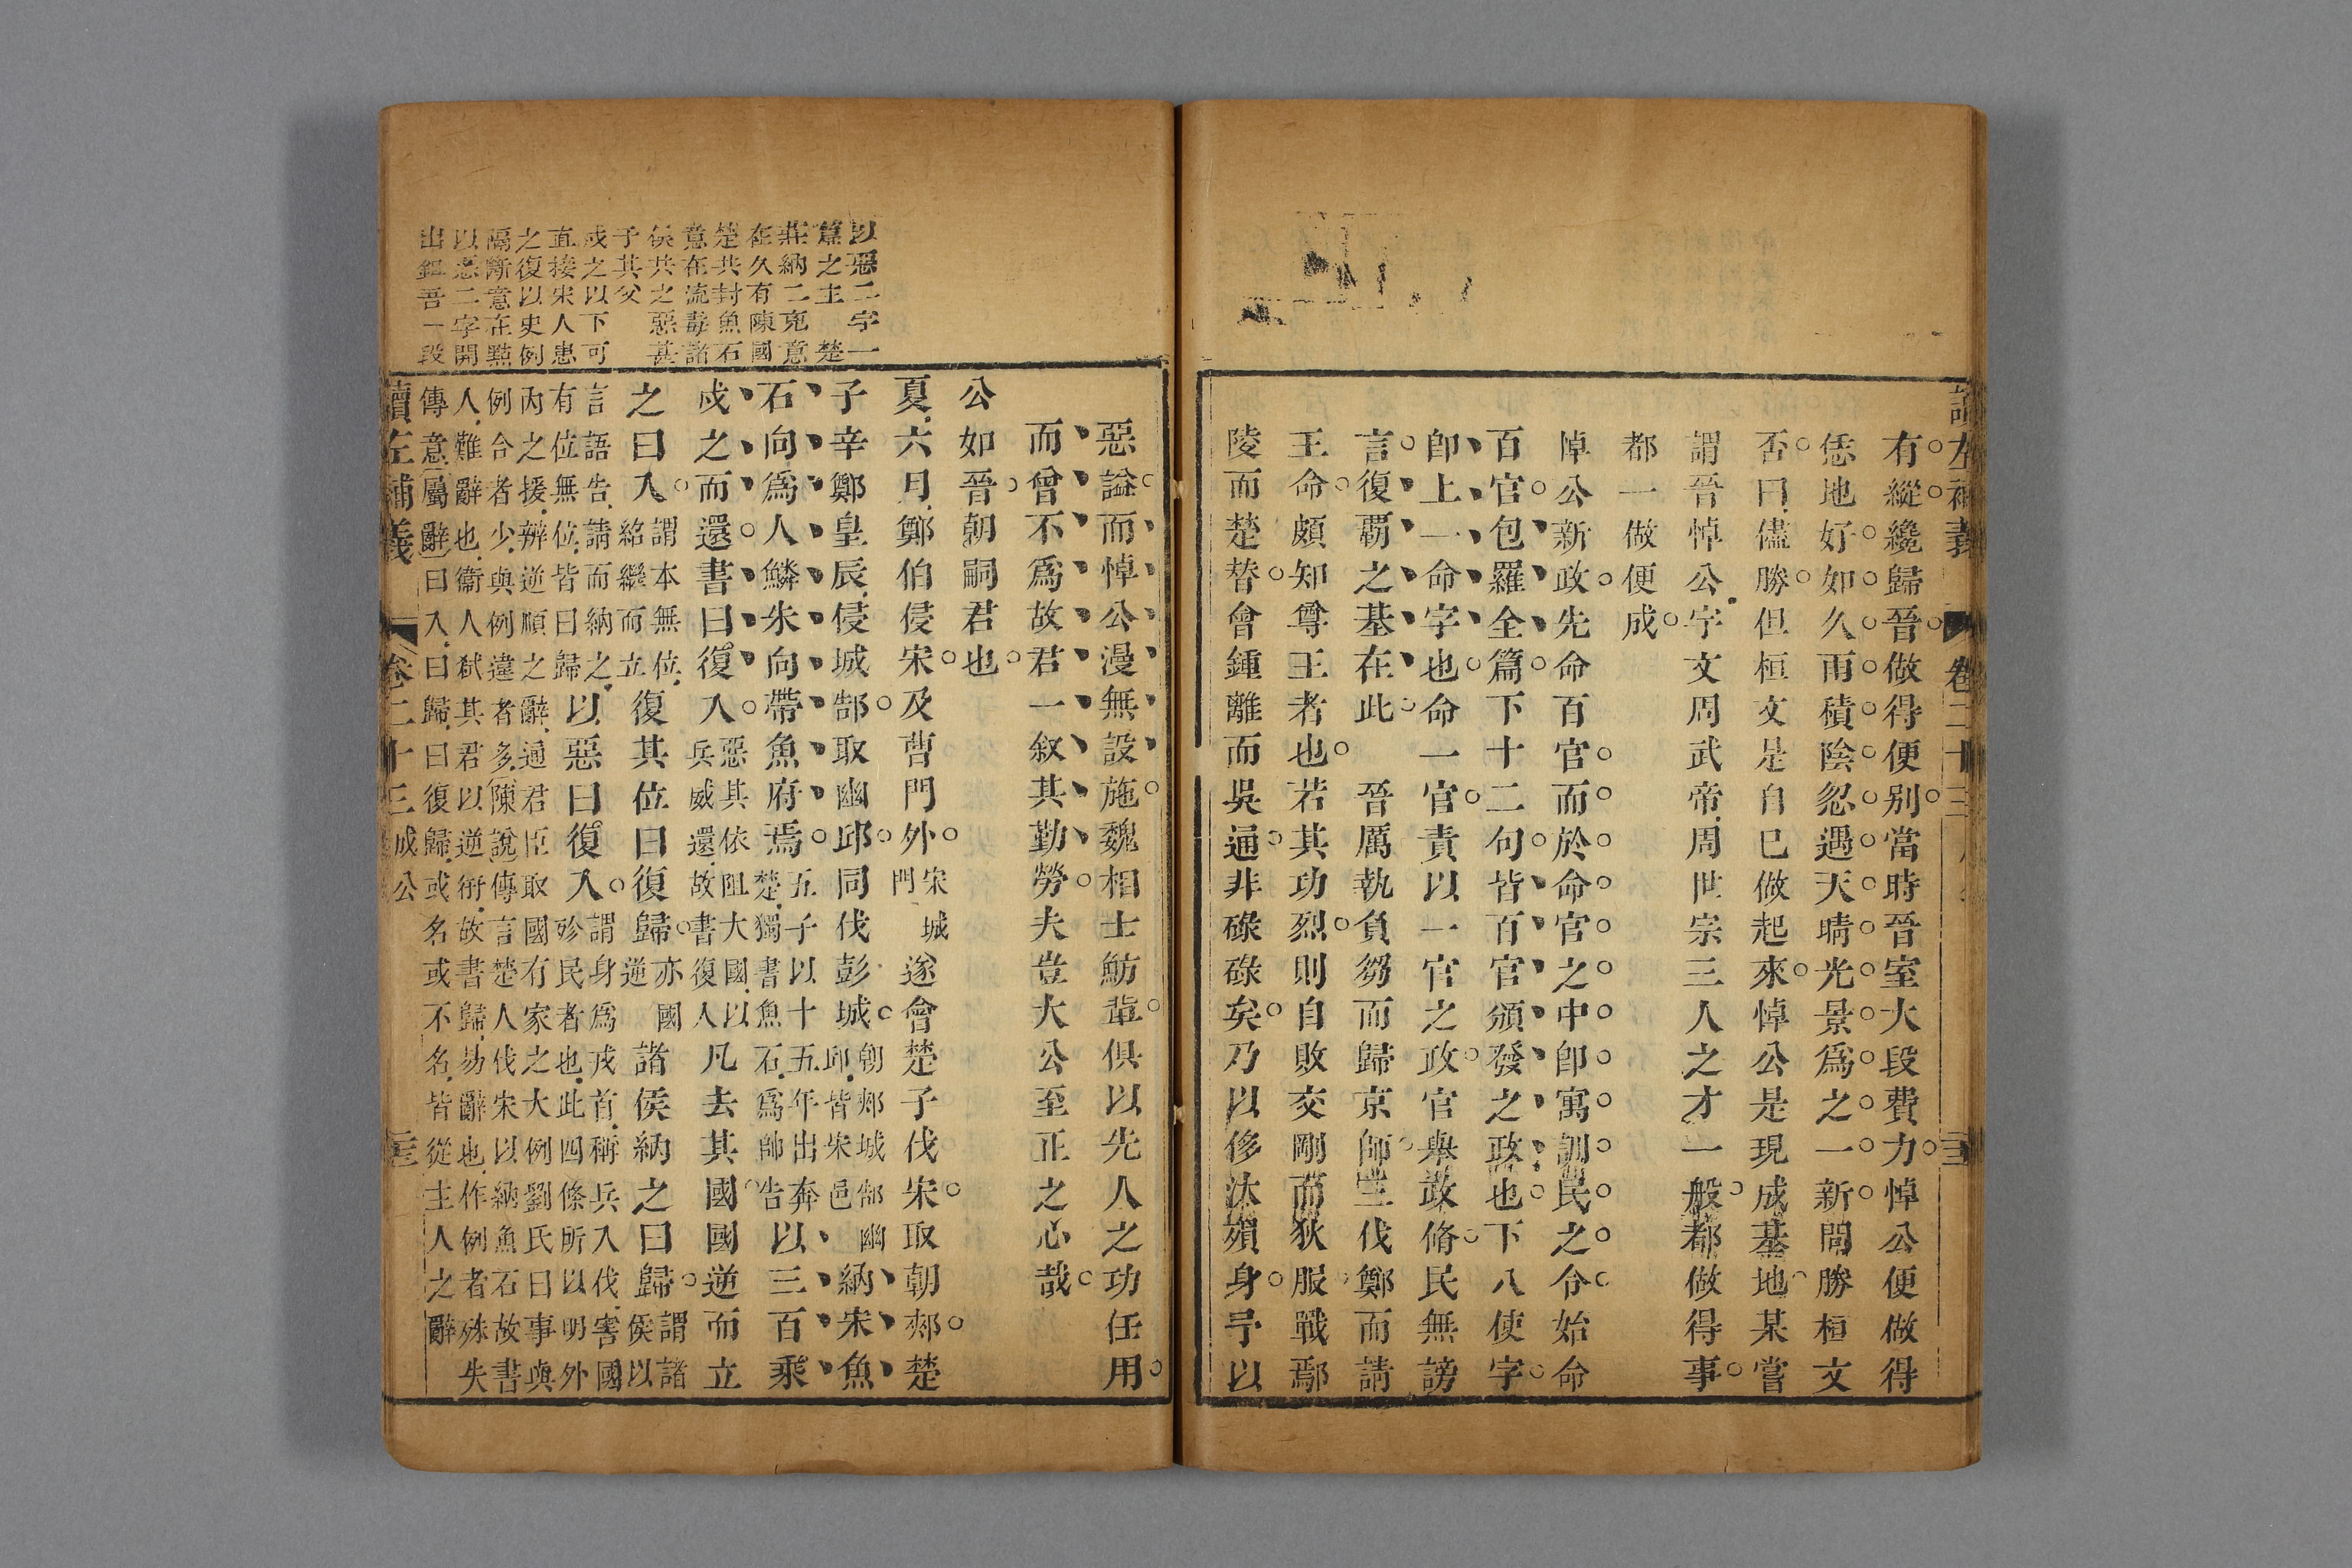 讀左補義 卷二十三
有縱纔歸晉做得便別當時晉室大段費力悼公便做得
恁地好如久雨積陰忽遇天晴光景爲之一新問勝桓文
否曰儘勝但桓文是自巳做起來悼公是現成基地某嘗
謂晉悼公宇文周武帝周世宗三人之才一般都做得事
都一做便成
悼公新政先命百官而於命官之中卽寓訓民之令始命
百官包羅全篇下十二句皆百官頒發之政也下八使字
卽上一命字也命一官責以一官之政官舉政脩民無謗
言復覇之基在此 晉厲執負芻而歸京師三伐鄭而請
王命頗知尊王者也若其功烈則自敗交剛而狄服戰鄢
陵而楚替會鍾離而吳通非碌碌矣乃以侈汰殞身予以
惡謚而悼公漫無設施魏相士魴輩俱以先人之功任用
而曾不爲故君一叙其勤勞夫豈大公至正之心哉
公如晉朝嗣君也
夏六月鄭伯侵宋及曹門外宋城門遂會楚子伐宋取朝郟楚
子辛鄭皇辰侵城郜取幽邱同伐彭城朝郟城郜幽邱皆宋邑納宋魚
石向爲人鱗朱向帶魚府焉五子以十五年出奔楚獨書魚石爲帥告以三百乘
戍之而還書曰復入惡其依阻大國以兵威還故書復入凡去其國國逆而立
之曰入謂本無位紹繼而立復其位曰復歸亦國逆諸侯納之曰歸謂諸侯以
言語告請而納之有位無位皆曰歸以惡曰復入謂身爲戎首稱兵入伐害國殄民者也此四條所以明外
內之援辨逆順之辭通君臣取國有家之大例劉氏曰事與
例合者少與例違者多陳說傳言楚人伐宋以納魚石故書
人難辭也衞人弒其君以逆衎故書歸易辭也作例者殊失
傳意屬辭曰入曰歸曰復歸或名或不名皆從主人之辭
讀左補義 卷二十三 成公 三
以惡二字一
篇之主 楚
莊納二克意
在久有陳國
楚共封魚石
意在流毒諸
侯共之惡甚
子其父
戍之以下可
直接宋人患
之復以史例
隔斷意在點
以惡二字開
出鉏吾一段